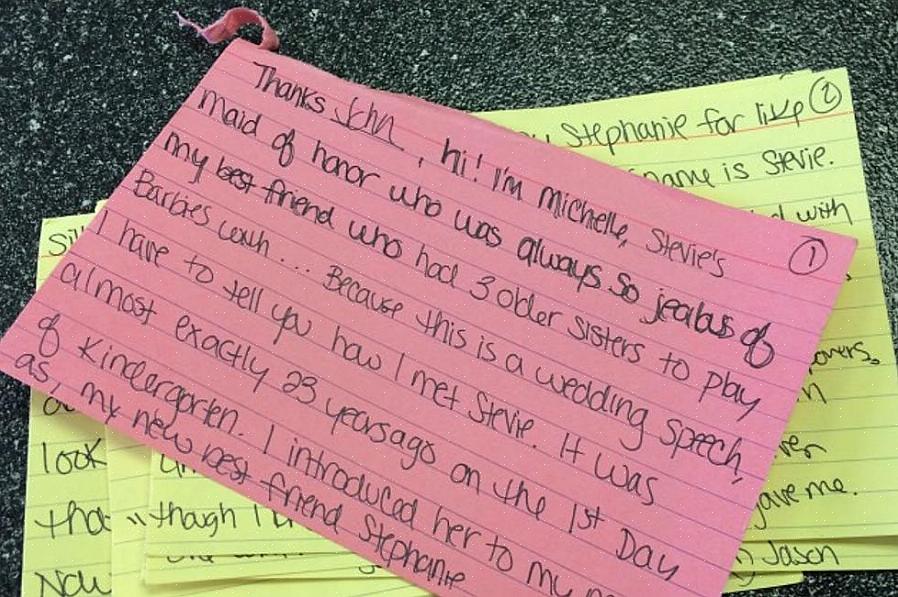 Thanks John, hi! I'm michelle, Stevie's
①
maid of honor who was always so jealous of
my best friend who had 3 older sisters to play
Barbies with... Because this is a wedding speech,
I have to tell you how I met Stevie. It was
almost exactly 23 years ago on the 1st Day
of Kindergarten. I introduced her to my
as, my new best friend Stephanie
Stephanie for like ②
name is Stevie.
with
gave me.
Jason
look
"though I
Now